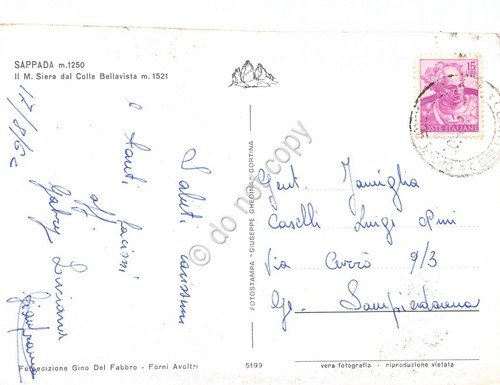 SAPPADA m. 1250
Il M. Siera dal Colle Bellavista m. 1521
17/8/62
Saluti carissimi
e tanti
affj bacioni
Gabry Luciana
Gianfranca
15
POSTE ITALIANE
Gent. Famiglia
Caselli Luigi Pini
Via Cerrò 9/3
Ge. Sampierdarena
FOTOSTAMPA "GIUSEPPE GHEDINA" - CORTINA
Fotoedizione Gino Del Fabbro - Forni Avoltri
5199
vera fotografia - riproduzione vietata
do not copy